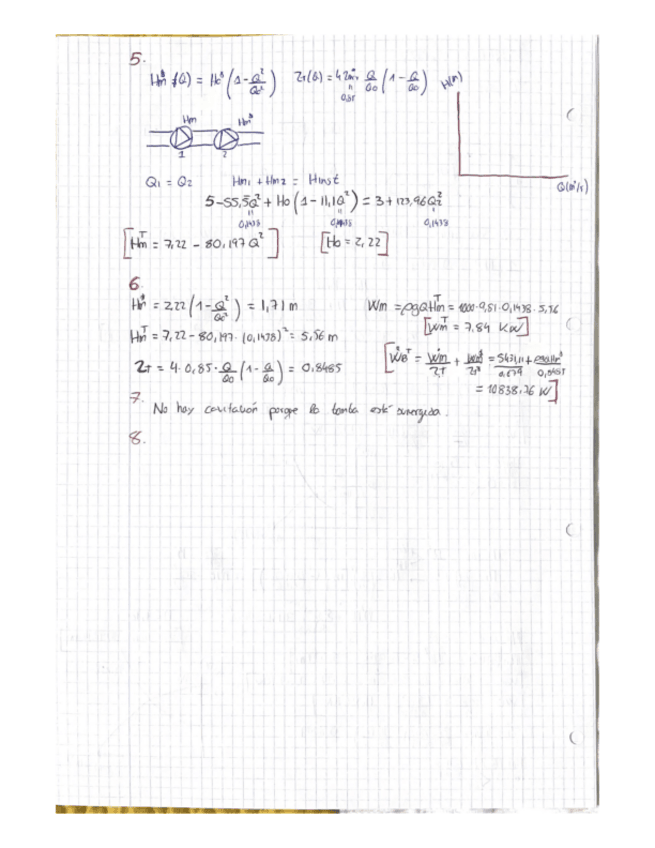 5.
Hm*(Q) = Ho* (1 - Q²/Qo²)   ηT(Q) = 4 ηmáx Q/Qo (1 - Q/Qo)   H(m)
0,85
Hm   Hm*
1   2
Q(m³/s)
Q1 = Q2   Hm1 + Hm2 = Hinst
5 - 55,5Q² + Ho (1 - 11,1Q²) = 3 + 123,96Q²
0,1438   0,1438   0,1438
[HmT = 7,22 - 80,197 Q²]   [Ho = 2,22]
6.
Hm* = 2,22 (1 - Q²/Qo²) = 1,71 m   Wm = ρgQHmT = 1000·9,81·0,1438·5,56
HmT = 7,22 - 80,197·(0,1438)² = 5,56 m   [WmT = 7,84 KW]
ηT = 4·0,85·Q/Qo (1 - Q/Qo) = 0,8485   [WBT = Wm/ηT + Wm*/ηT* = 5431,11/0,679 + ρgQHm*/0,8485
= 10838,36 W]
7.
No hay cavitación porque la bomba está sumergida.
8.